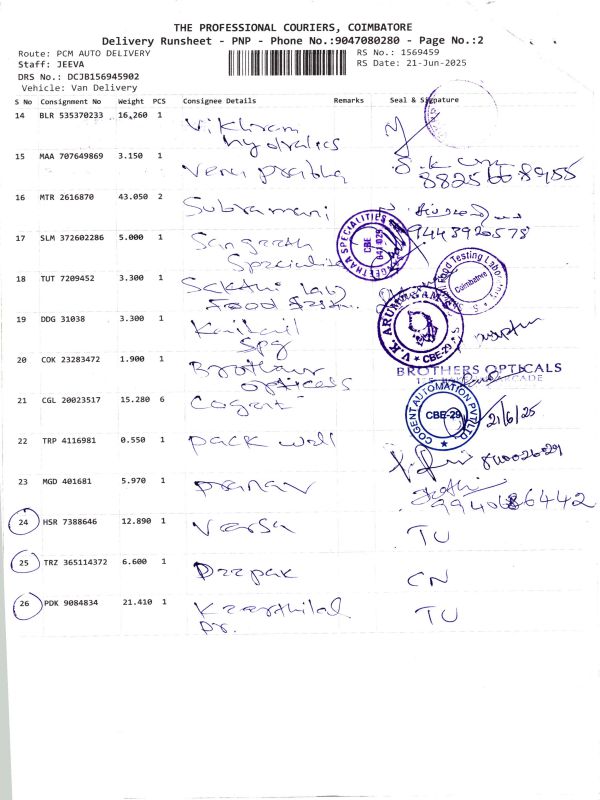 THE PROFESSIONAL COURIERS, COIMBATORE
Delivery Runsheet - PNP - Phone No.:9047080280 - Page No.:2
Route: PCM AUTO DELIVERY
RS No.: 1569459
Staff: JEEVA
RS Date: 21-Jun-2025
DRS No.: DCJB156945902
Vehicle: Van Delivery
S No Consignment No Weight PCS Consignee Details Remarks Seal & Signature
14 BLR 535370233 16.260 1 Vikhram
hydralics
15 MAA 707649869 3.150 1 Venu prabha
8825668955
16 MTR 2616870 43.050 2 Subramani
9443920578
17 SLM 372602286 5.000 1 Sangeetha
SPECIALITIES CBE
18 TUT 7209452 3.300 1 Sakthi lab
Food
Food Testing Labor
Coimbatore
19 DDG 31038 3.300 1 Kailail
Spg
K. ARUMUGSAMY CBE-29
20 COK 23283472 1.900 1 Brothers
opticals
BROTHERS OPTICALS
ARCADE
21 CGL 20023517 15.280 6 Cogent
COGENT AUTOMATION PVT LTD CBE-29
21/6/25
22 TRP 4116981 0.550 1 pack well
23 MGD 401681 5.970 1 pranav
9940686442
24 HSR 7388646 12.890 1 Varsa TU
25 TRZ 365114372 6.600 1 Deepak CN
26 PDK 9084834 21.410 1 Keerthilal TU
Dr.